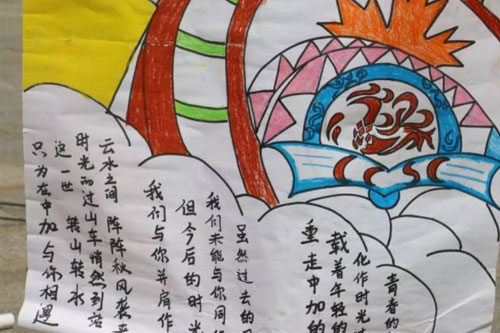 CCSC
青春的
化作时光
载着年轻的
重走中加的
虽然过去的
我们未能与你同
但今后的时光
我们与你并肩作
云水之间 阵阵秋风袭来
时光的过山车悄然到站
这一世 转山转水
只为在中加与你相遇